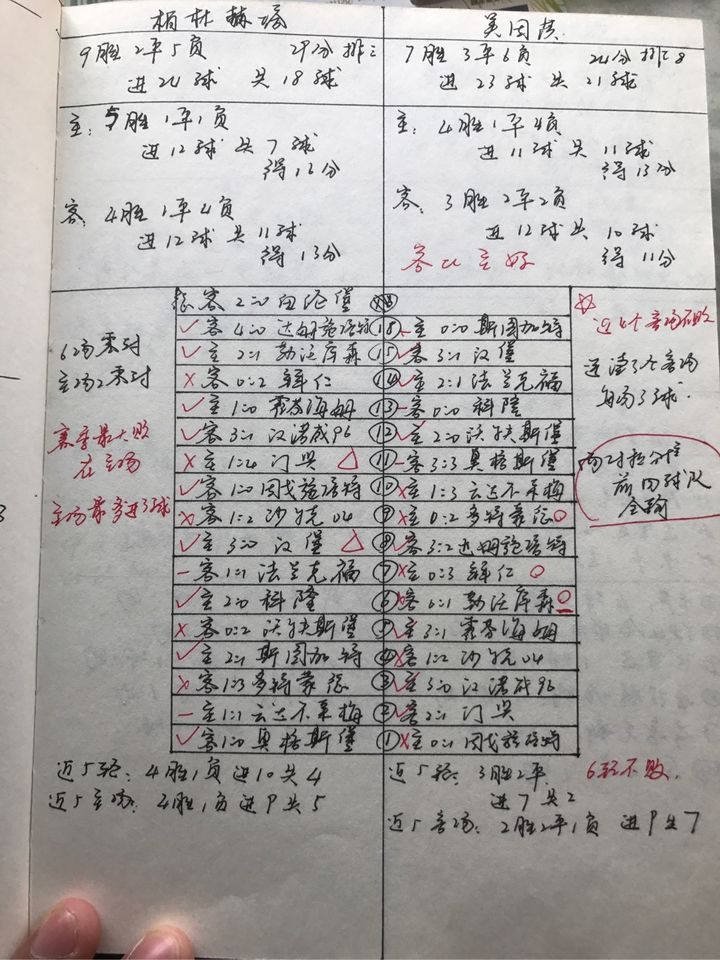 柏林赫塔
9胜2平5负 29分 排三
进24球 失18球
主：5胜1平1负
进12球 失7球
得16分
客：4胜1平4负
进12球 失11球
得13分
美因茨
7胜3平6负 24分 排 8
进23球 失21球
主：4胜1平4负
进11球 失11球
得13分
客：3胜2平2负
进12球 失10球
得11分
客比主好
6场未对
主场2未对
赛季最大败
在主场
主场最多进3球
客2:0
✓客4:0达姆施塔特
✓主2:1勒沃库森
×客0:2拜仁
✓主1:0霍芬海姆
✓客3:1汉诺威96
×主1:4门兴 △
✓客1:0因戈施塔特
×客1:2沙尔克04
✓主3:0汉堡 △
-客1:1法兰克福
✓主2:0科隆
×客0:2沃尔夫斯堡
✓主2:1斯图加特
×客1:3多特蒙德
-主1:1云达不来梅
✓客1:0奥格斯堡
⑯-主0:0斯图加特
⑮✓客3:1汉堡
⑭✓主2:1法兰克福
⑬-客0:0科隆
⑫✓主2:0沃尔夫斯堡
⑪-客3:3奥格斯堡
⑩×主1:3云达不来梅
⑨×主0:2多特蒙德○
⑧✓客3:2达姆施塔特
⑦×主0:3拜仁 ○
⑥×客0:1勒沃库森○
⑤✓主3:1霍芬海姆
④×客1:2沙尔克04
③✓主3:0汉诺威96
②✓客2:1门兴
①×主0:1因戈施塔特
☆
近4个客场不败
连续3个客场
每场3球.
两对积分排
前四球队
全输
近5轮：4胜1负 进10失4
近5主场：4胜1负 进9失5
近5轮：3胜2平 6轮不败.
进7失2
近5客场：2胜2平1负 进9失7